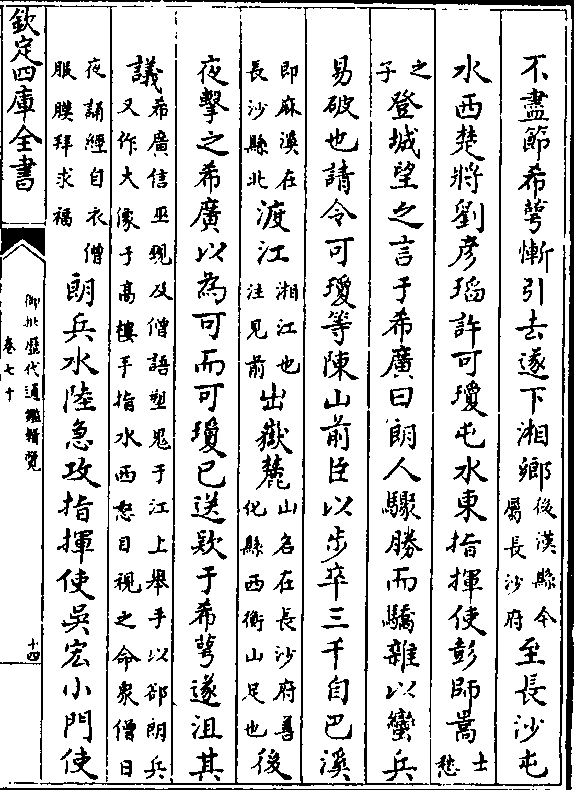 不盡節希萼慚引去遂下湘鄉後漢縣今屬長沙府至長沙屯
水西楚將劉彥瑫許可瓊屯水東指揮使彭師暠士愁
之子登城望之言于希廣曰朗人驟勝而驕雜以蠻兵
易破也請令可瓊等陳山前臣以步卒三千自巴溪
即麻溪在長沙縣北渡江湘江也注見前出嶽麓山名在長沙府善化縣西衡山足也後
夜擊之希廣以為可而可瓊已送款于希萼遂沮其
議希廣信巫覡及僧語塑鬼于江上舉手以郤朗兵又作大像于高樓手指水西怒目視之命衆僧日
夜誦經自衣僧服膜拜求福朗兵水陸急攻指揮使吳宏小門使
欽定四庫全書
御批歷代通鑑輯覽
卷七十
十四